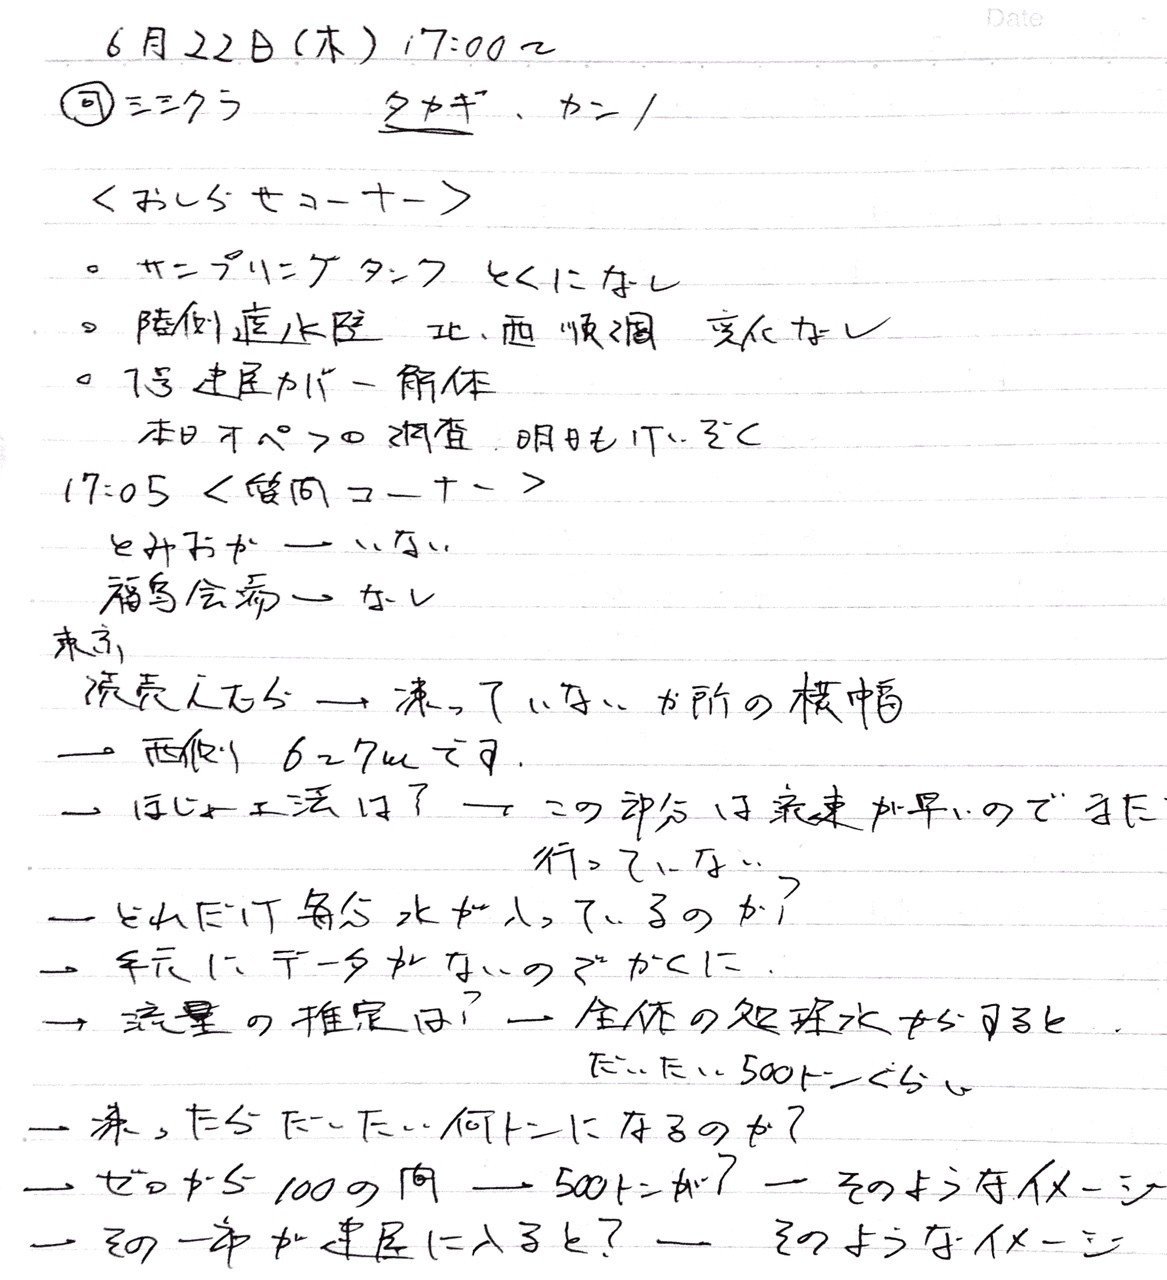 Date
6月22日(木) 17:00~
司 シシクラ タカギ、カンノ
<おしらせコーナー>
○ サンプリングタンク とくになし
○ 陸側遮水壁 北、西 順調 変化なし
○ 1号 建屋カバー 解体
本日オペフロ調査 明日もけいぞく
17:05 <質問コーナー>
とみおか → いない
福島会場 → なし
東京
読売 → 凍っていないか所の横幅
→ 西側 6~7mです.
→ ほじょ工法は? → この部分は流速が早いのでまだ
行っていない
→ どれだけ毎分水が入っているのか?
→ 手元にデータがないのでかくに.
→ 流量の推定は? → 全体の処理水からすると
だいたい500トンぐらい
→ 凍ったらだいたい何トンになるのか?
→ ゼロから100の間 → 500トンが? → そのようなイメージ
→ その一部が建屋に入ると? → そのようなイメージ